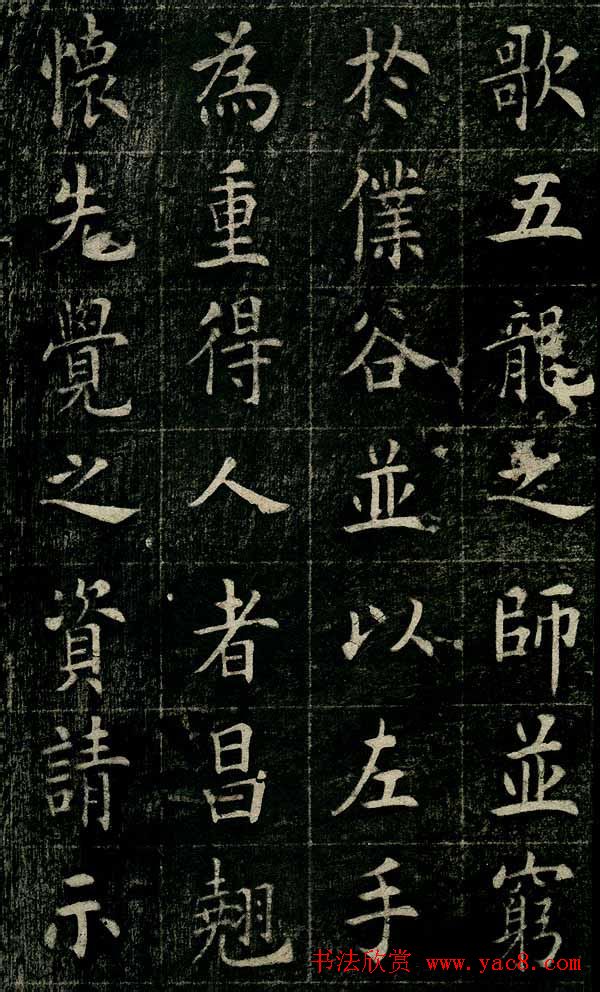 歌五龍之師並窮
於僕谷並以左手
為重得人者昌翹
懷先覺之資請示
书法欣赏 www.yac8.com